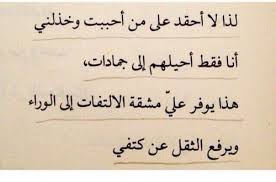 لذا لا أحقد على من أحببت وخذلني
أنا فقط أحيلهم إلى جمادات،
هذا يوفر عليّ مشقة الالتفات إلى الوراء
ويرفع الثقل عن كتفي